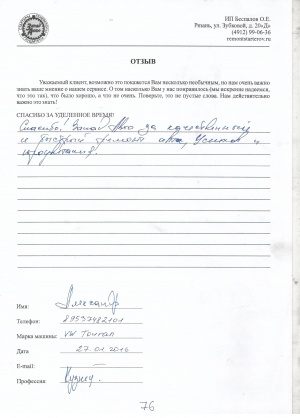 ИП Беспалов О.Е.
Рязань, ул. Зубковой, д. 20«Д»
(4912) 99-06-36
remontstarterov.ru
ОТЗЫВ
Уважаемый клиент, возможно это покажется Вам несколько необычным, но нам очень важно
знать ваше мнение о нашем сервисе. О том насколько Вам у нас понравилось (мы искренне надеемся,
что это так), что было хорошо, а что не очень. Поверьте, это не пустые слова. Нам действительно
важно это знать!
СПАСИБО ЗА УДЕЛЕННОЕ ВРЕМЯ!
Спасибо! Авто за качественный
и быстрый ремонт авто, Успехов и
процветания!
Имя: Александр
Телефон: 89537482101
Марка машины: VW Touran
Дата 27.01.2016
E-mail: —
Профессия:
76